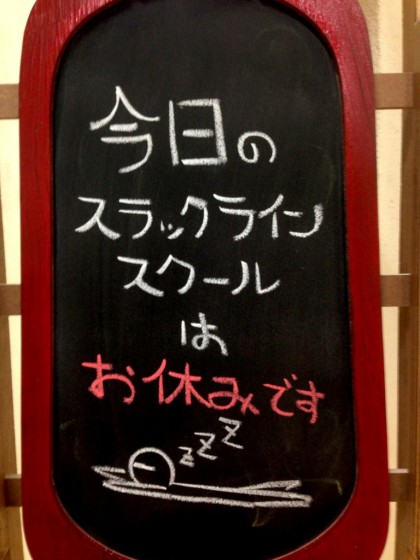 今日の
スラックライン
スクール
は
お休みです
zzZ